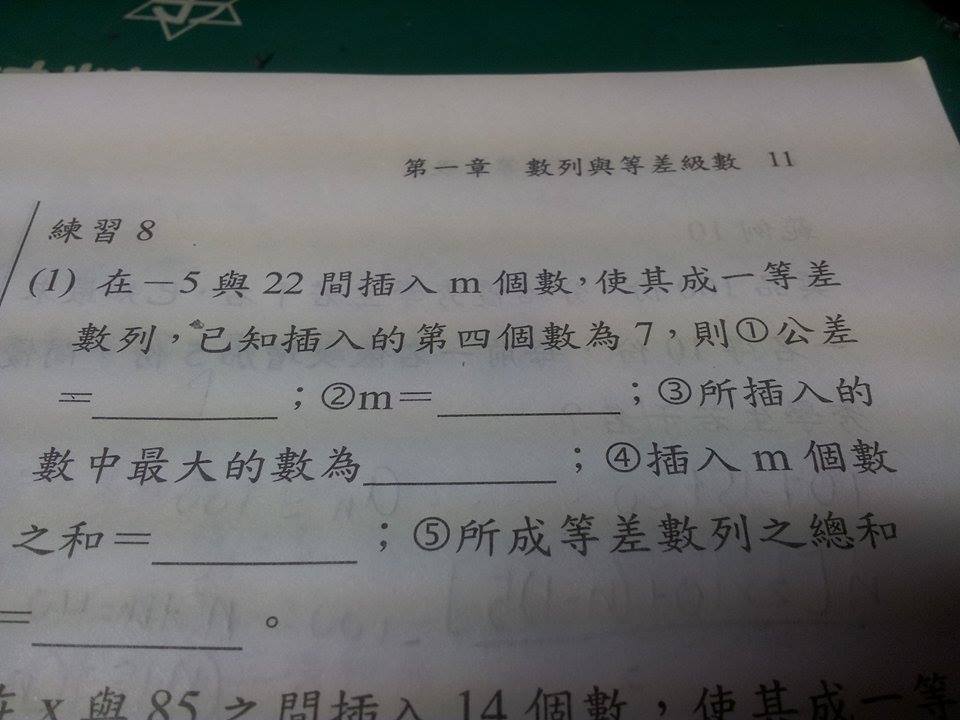 第一章 數列與等差級數 11
練習 8
(1) 在－5 與 22 間插入 m 個數，使其成一等差
數列，已知插入的第四個數為 7，則①公差
=＿＿＿＿＿；②m=＿＿＿＿＿；③所插入的
數中最大的數為＿＿＿＿＿；④插入 m 個數
之和=＿＿＿＿＿；⑤所成等差數列之總和
=＿＿＿＿＿。
在 x 與 85 之間插入 14 個數，使其成一等